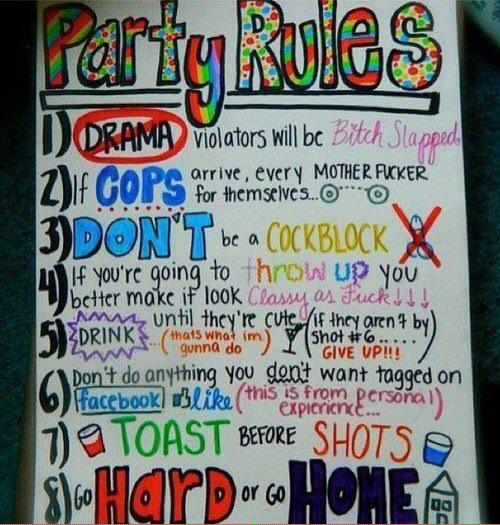 Party Rules
1) DRAMA violators will be Bitch Slapped
2) If COPS arrive, every MOTHER FUCKER
for themselves...
3) DON'T be a COCKBLOCK
4) If you're going to throw up you
better make it look Classy as Fuck!!!
5) DRINK until they're cute (if they aren't by)
(thats what im) (shot #6.....)
gunna do GIVE UP!!!
6) Don't do anything you don't want tagged on
facebook like (this is from personal)
expierience...
7) TOAST BEFORE SHOTS
8) GO HARD or GO HOME